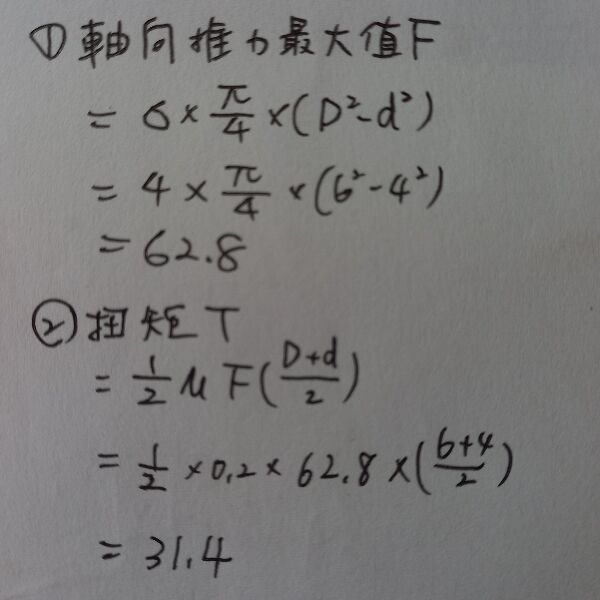 ① 軸向推力最大值F
= σ × π/4 × (D²-d²)
= 4 × π/4 × (6²-4²)
= 62.8
② 扭矩T
= 1/2 μ F (D+d/2)
= 1/2 × 0.2 × 62.8 × (6+4/2)
= 31.4